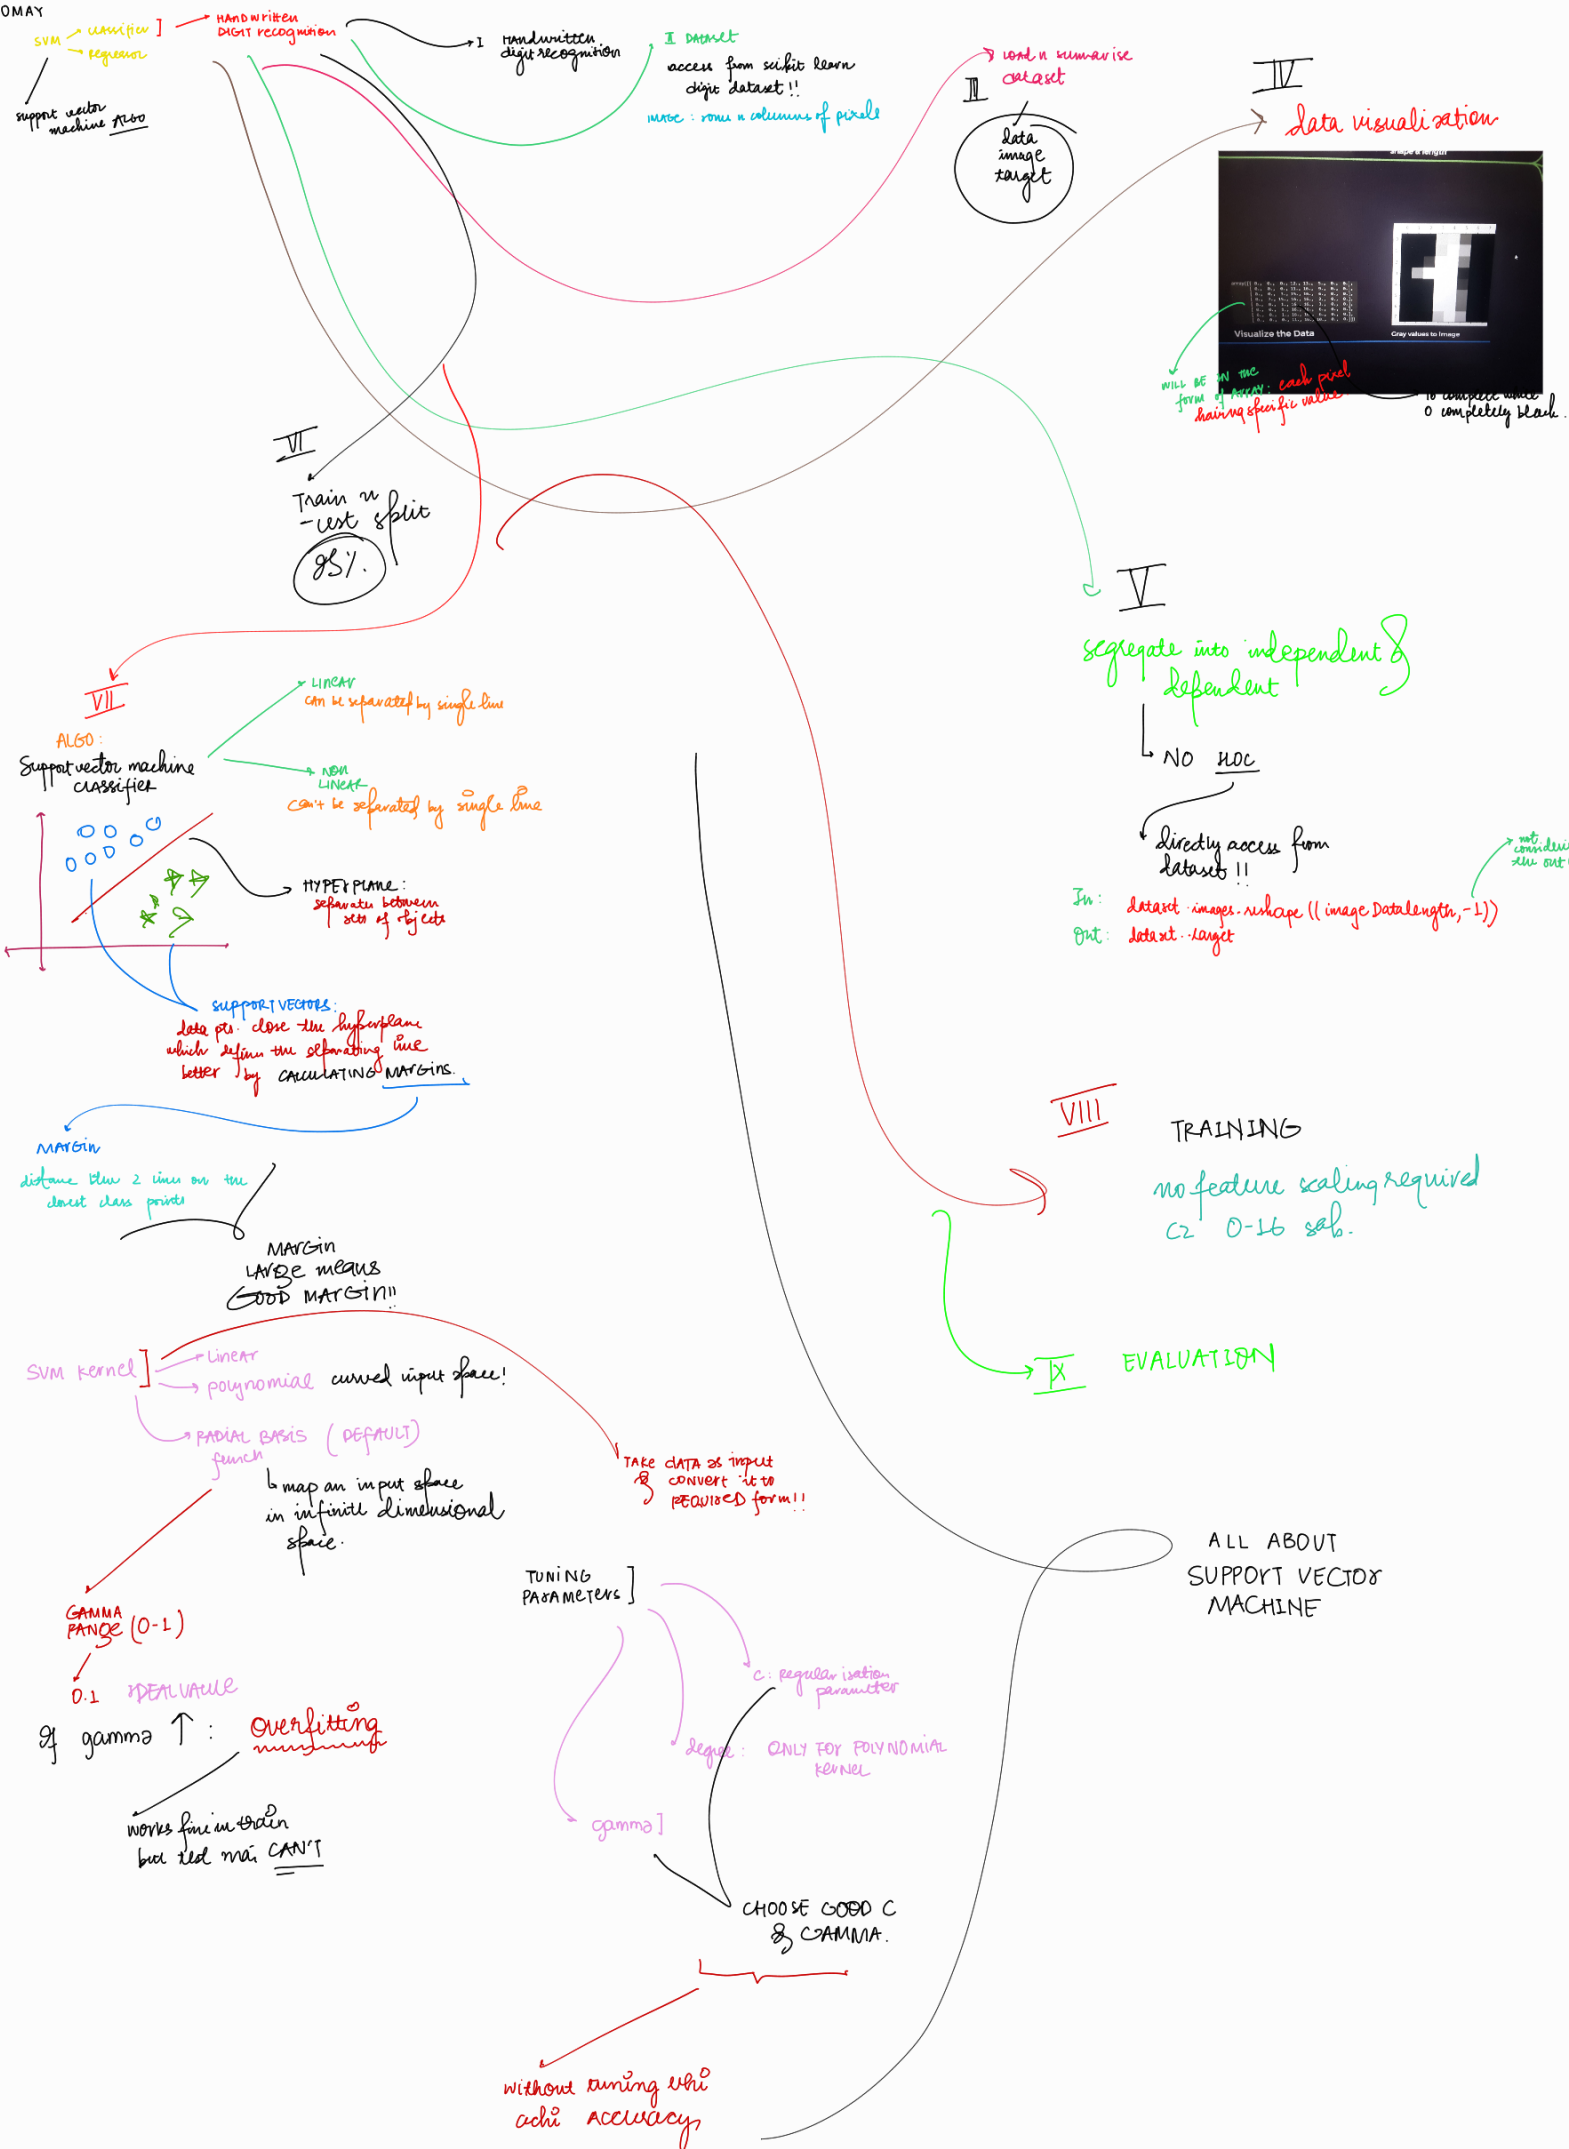 OMAY
SVM
classifier ]
regressor
support vector
machine ALGO
HANDwritten
DIGIT recognition
I HANDwritten
digit recognition
II DATASET
access from scikit learn
digit dataset !!
IMAGE : rows n columns of pixels
III
LOAD n summarise
dataset
data
image
target
IV
data visualisation
Shape & length
Visualize the Data
Gray values to Image
WILL BE IN the
form of ARRAY: each pixel
having specific value
16 complete white
0 completely black.
VI
Train n
test split
V
segregate into independent &
dependent
NO
directly access from
dataset !!
not
the out
In: dataset.images.reshape((imageDatalength,-1))
Out: dataset.target
VII
ALGO:
Support vector machine
CLASSIFIER
LINEAR
CAN be separated by single line
NON
LINEAR
can't be separated by single line
HYPERPLANE:
separates between
sets of objects
SUPPORT VECTORS:
data pts. close the hyperplane
which defines the separating line
better by CALCULATING MARGINS.
MARGIN
distance btw 2 lines on the
closest class points
MARGIN
LARGE means
GOOD MARGIN!!
VIII
TRAINING
no feature scaling required
cz 0-16 sab.
IX EVALUATION
SVM kernel ]
Linear
polynomial curved input space!
RADIAL BASIS (DEFAULT)
funcn
map an input space
in infinite dimensional
space.
TAKE DATA as input
& convert it to
REQUIRED form!!
GAMMA
RANGE (0-1)
0.1 IDEAL VALUE
If gamma ↑ : Overfitting
works fine in train
but test mai CAN'T
TUNING
PARAMETERS ]
C: Regularisation
parameter
degree: ONLY FOR POLYNOMIAL
KERNEL
gamma ]
CHOOSE GOOD C
& GAMMA.
without tuning bhi
achi ACCURACY
ALL ABOUT
SUPPORT VECTOR
MACHINE